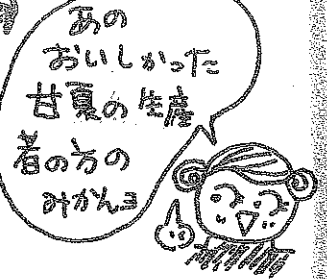 あの
おいしかった
甘夏の生産
者の方の
みかんョ